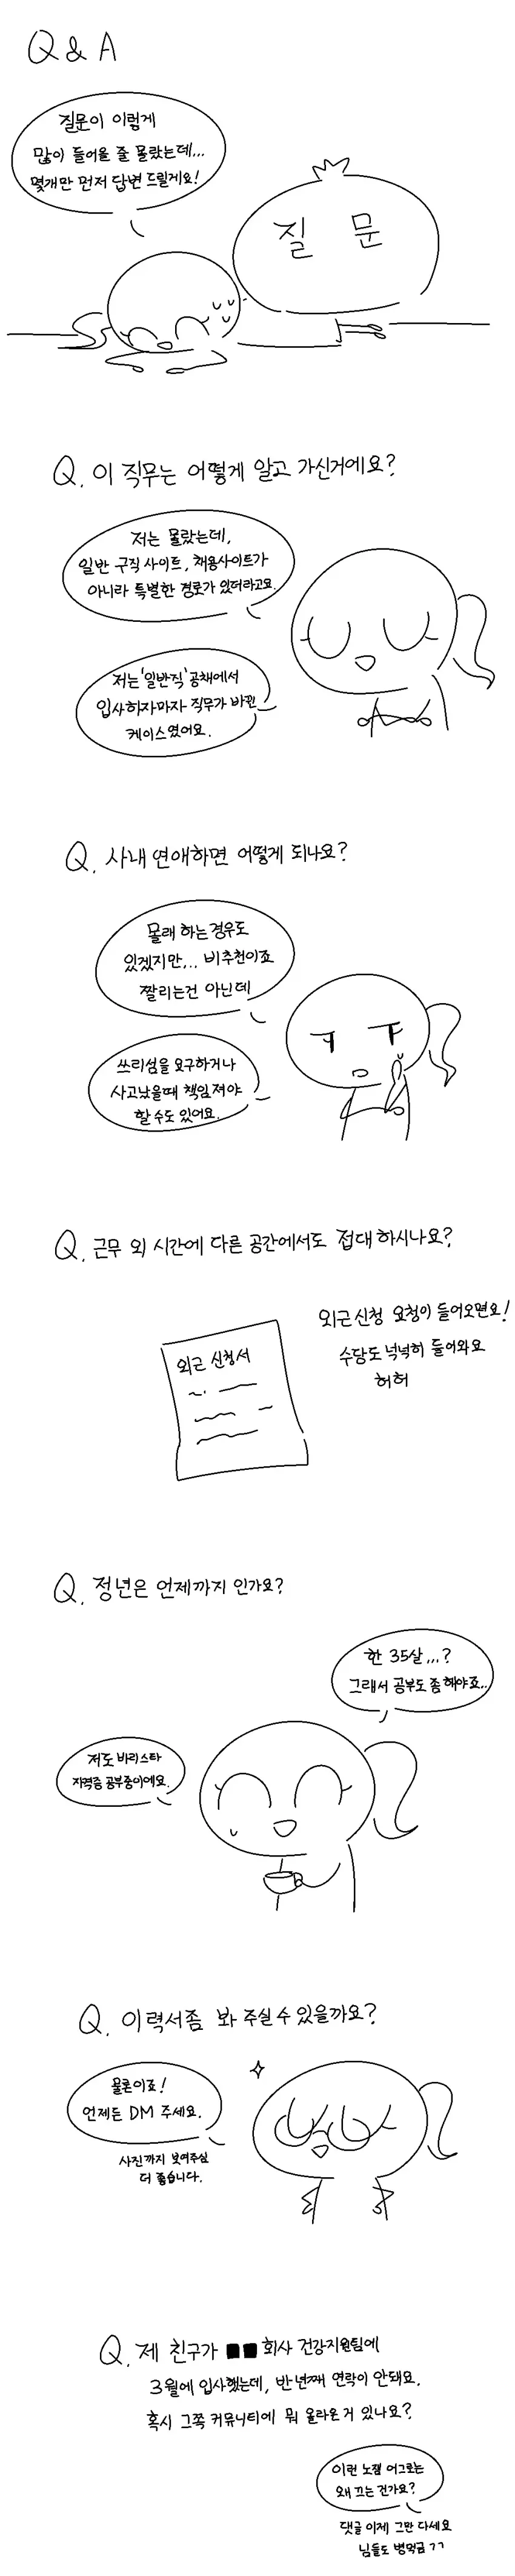 Q & A
질문이 이렇게
많이 들어올 줄 몰랐는데...
몇개만 먼저 답변 드릴게요!
질 문
Q. 이 직무는 어떻게 알고 가신거에요?
저는 몰랐는데,
일반 구직 사이트, 채용사이트가
아니라 특별한 경로가 있더라고요.
저는 '일반직' 공채에서
입사하자마자 직무가 바뀐
케이스였어요.
Q. 사내 연애하면 어떻게 되나요?
몰래 하는 경우도
있겠지만... 비추천이죠
짤리는건 아닌데
쓰리썸을 요구하거나
사고났을때 책임져야
할 수도 있어요.
Q. 근무 외 시간에 다른 공간에서도 접대 하시나요?
외근 신청서
외근신청 요청이 들어오면요!
수당도 넉넉히 들어와요
허허
Q. 정년은 언제까지 인가요?
한 35살...?
그래서 공부도 좀 해야죠..
저도 바리스타
자격증 공부중이에요.
Q. 이력서좀 봐 주실 수 있을까요?
물론이죠!
언제든 DM 주세요.
사진까지 보여주심
더 좋습니다.
Q. 제 친구가 ■■회사 건강지원팀에
3월에 입사했는데, 반년째 연락이 안돼요.
혹시 그쪽 커뮤니티에 뭐 올라온 거 있나요?
이런 노잼 어그로는
왜 끄는 건가요?
댓글 이제 그만 다세요
님들도 병먹금 ㄱㄱ